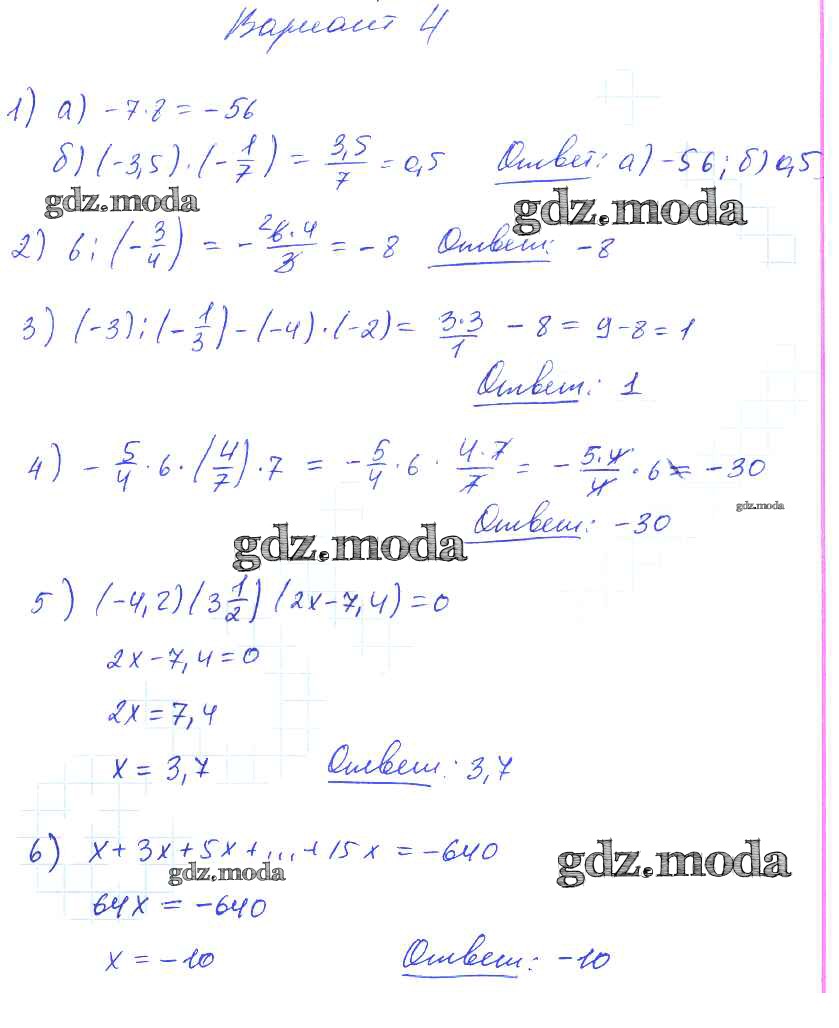 Вариант 4
1) а) -7·8 = -56
б) (-3,5)·(-1/7) = 3,5/7 = 0,5 Ответ: а) -56; б) 0,5
gdz.moda gdz.moda
2) 6 : (-3/4) = - ²6·4/3 = -8 Ответ: -8
3) (-3) : (-1/3) - (-4)·(-2) = 3·3/1 - 8 = 9-8 = 1
Ответ: 1
4) - 5/4 · 6 · (4/7) · 7 = - 5/4 · 6 · 4·7/7 = - 5·4/4 · 6 = -30
gdz.moda
Ответ: -30
gdz.moda
5) (-4,2)(3 1/2)(2x-7,4) = 0
2x-7,4=0
2x = 7,4
x = 3,7 Ответ: 3,7
6) x+3x+5x+...+15x = -640
gdz.moda gdz.moda
64x = -640
x = -10 Ответ: -10